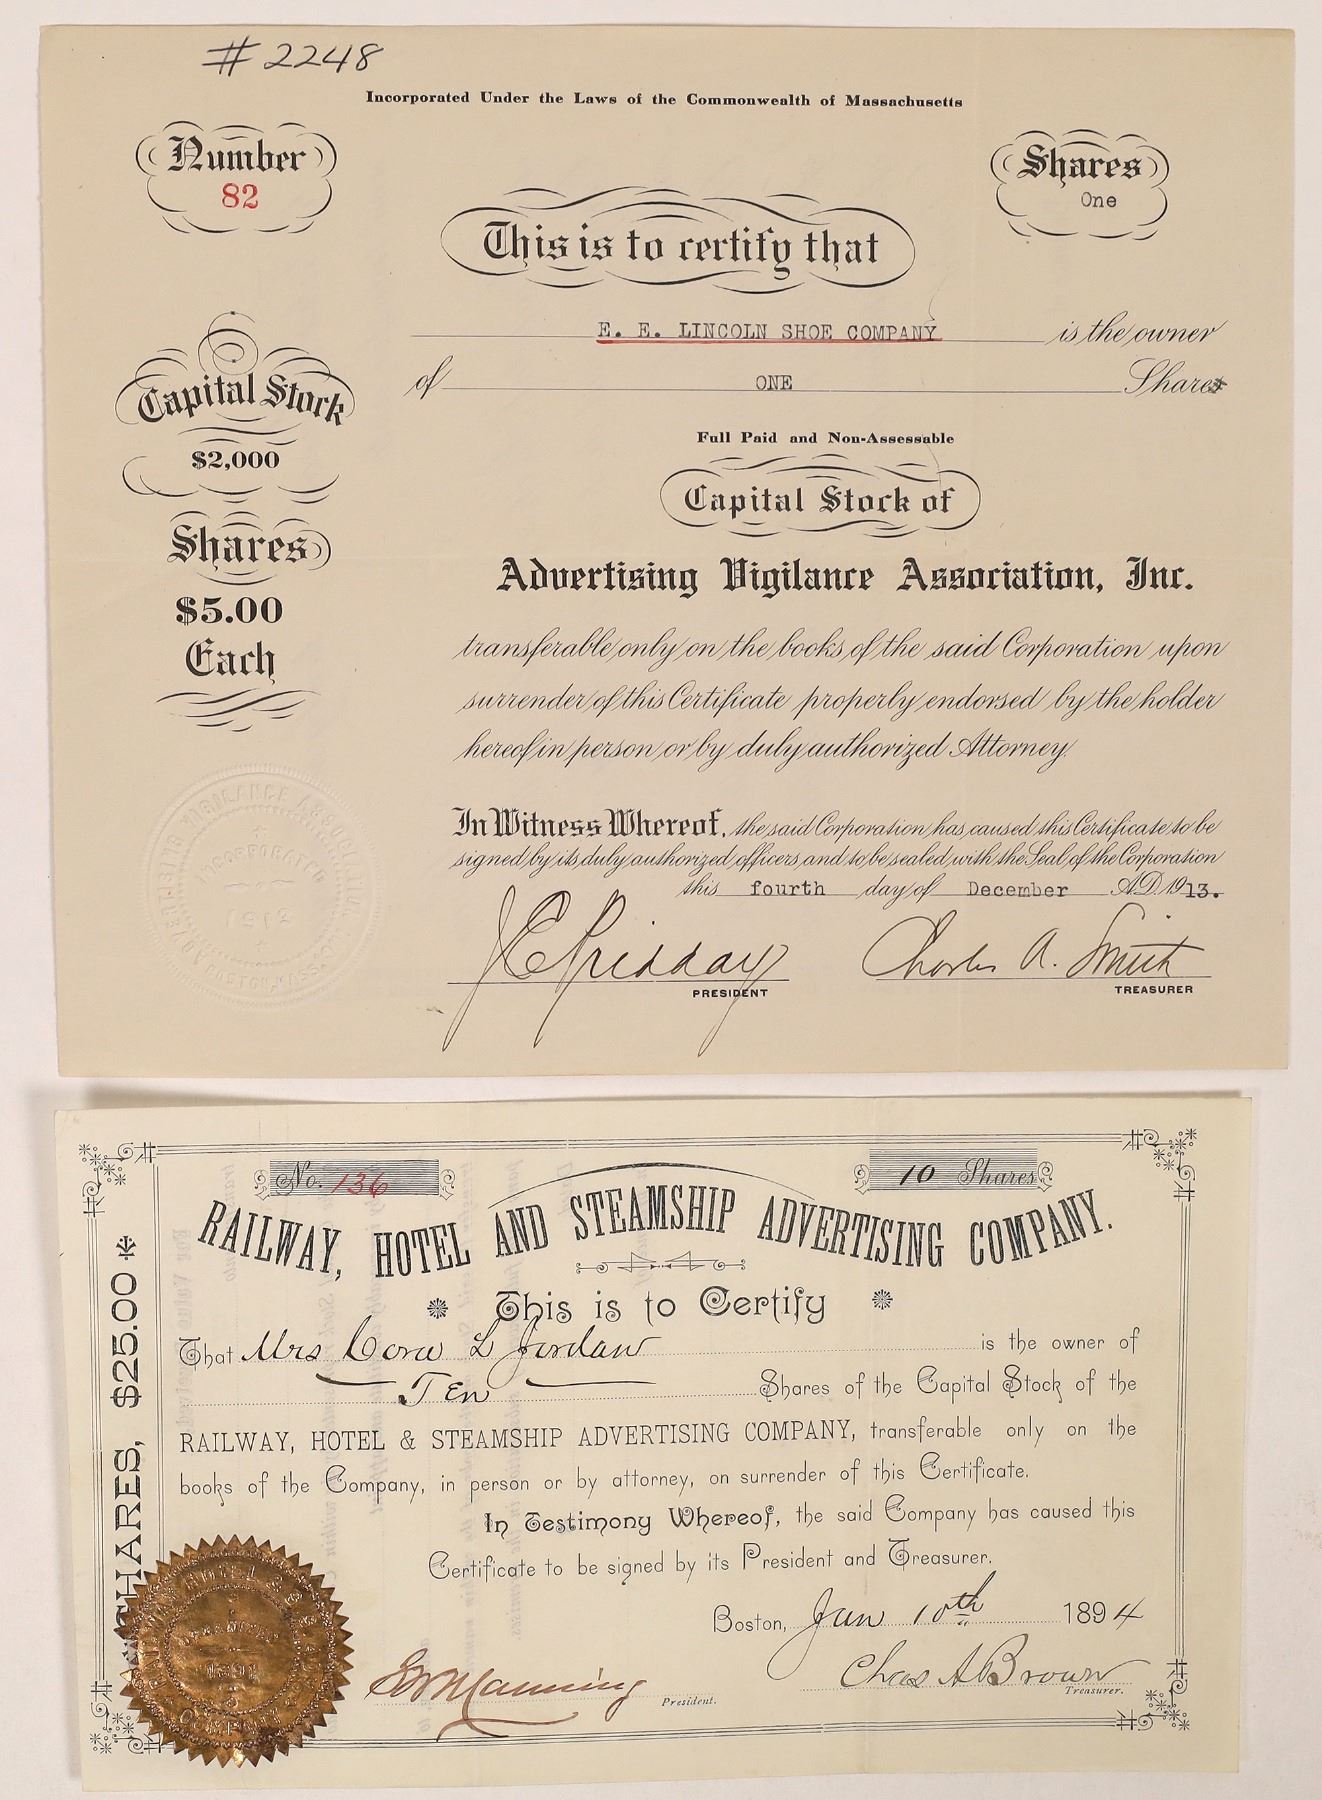 # 2248
Incorporated Under the Laws of the Commonwealth of Massachusetts
Number
82
Shares
One
This is to certify that
E. E. LINCOLN SHOE COMPANY is the owner
of ONE Shares
Capital Stock
$2,000
Shares
$5.00
Each
Full Paid and Non-Assessable
Capital Stock of
Advertising Vigilance Association, Inc.
transferable only on the books of the said Corporation upon
surrender of this Certificate properly endorsed by the holder
hereof in person or by duly authorized Attorney.
In Witness Whereof, the said Corporation has caused this Certificate to be
signed by its duly authorized officers and to be sealed with the Seal of the Corporation
this fourth day of December A.D. 1913.
ADVERTISING VIGILANCE ASSOCIATION
INCORPORATED
1913
J E Pridday
PRESIDENT
Charles A. Smith
TREASURER
No. 136
10 Shares
RAILWAY, HOTEL AND STEAMSHIP ADVERTISING COMPANY.
This is to Certify
That Mrs Cora L Jordan is the owner of
Ten Shares of the Capital Stock of the
RAILWAY, HOTEL & STEAMSHIP ADVERTISING COMPANY, transferable only on the
books of the Company, in person or by attorney, on surrender of this Certificate.
In Testimony Whereof, the said Company has caused this
Certificate to be signed by its President and Treasurer.
Boston, Jan 10th 1894
Manning
President.
Chas A Brown
Treasurer.
SHARES, $25.00
RAILWAY HOTEL
ORGANIZED
1891
COMPANY